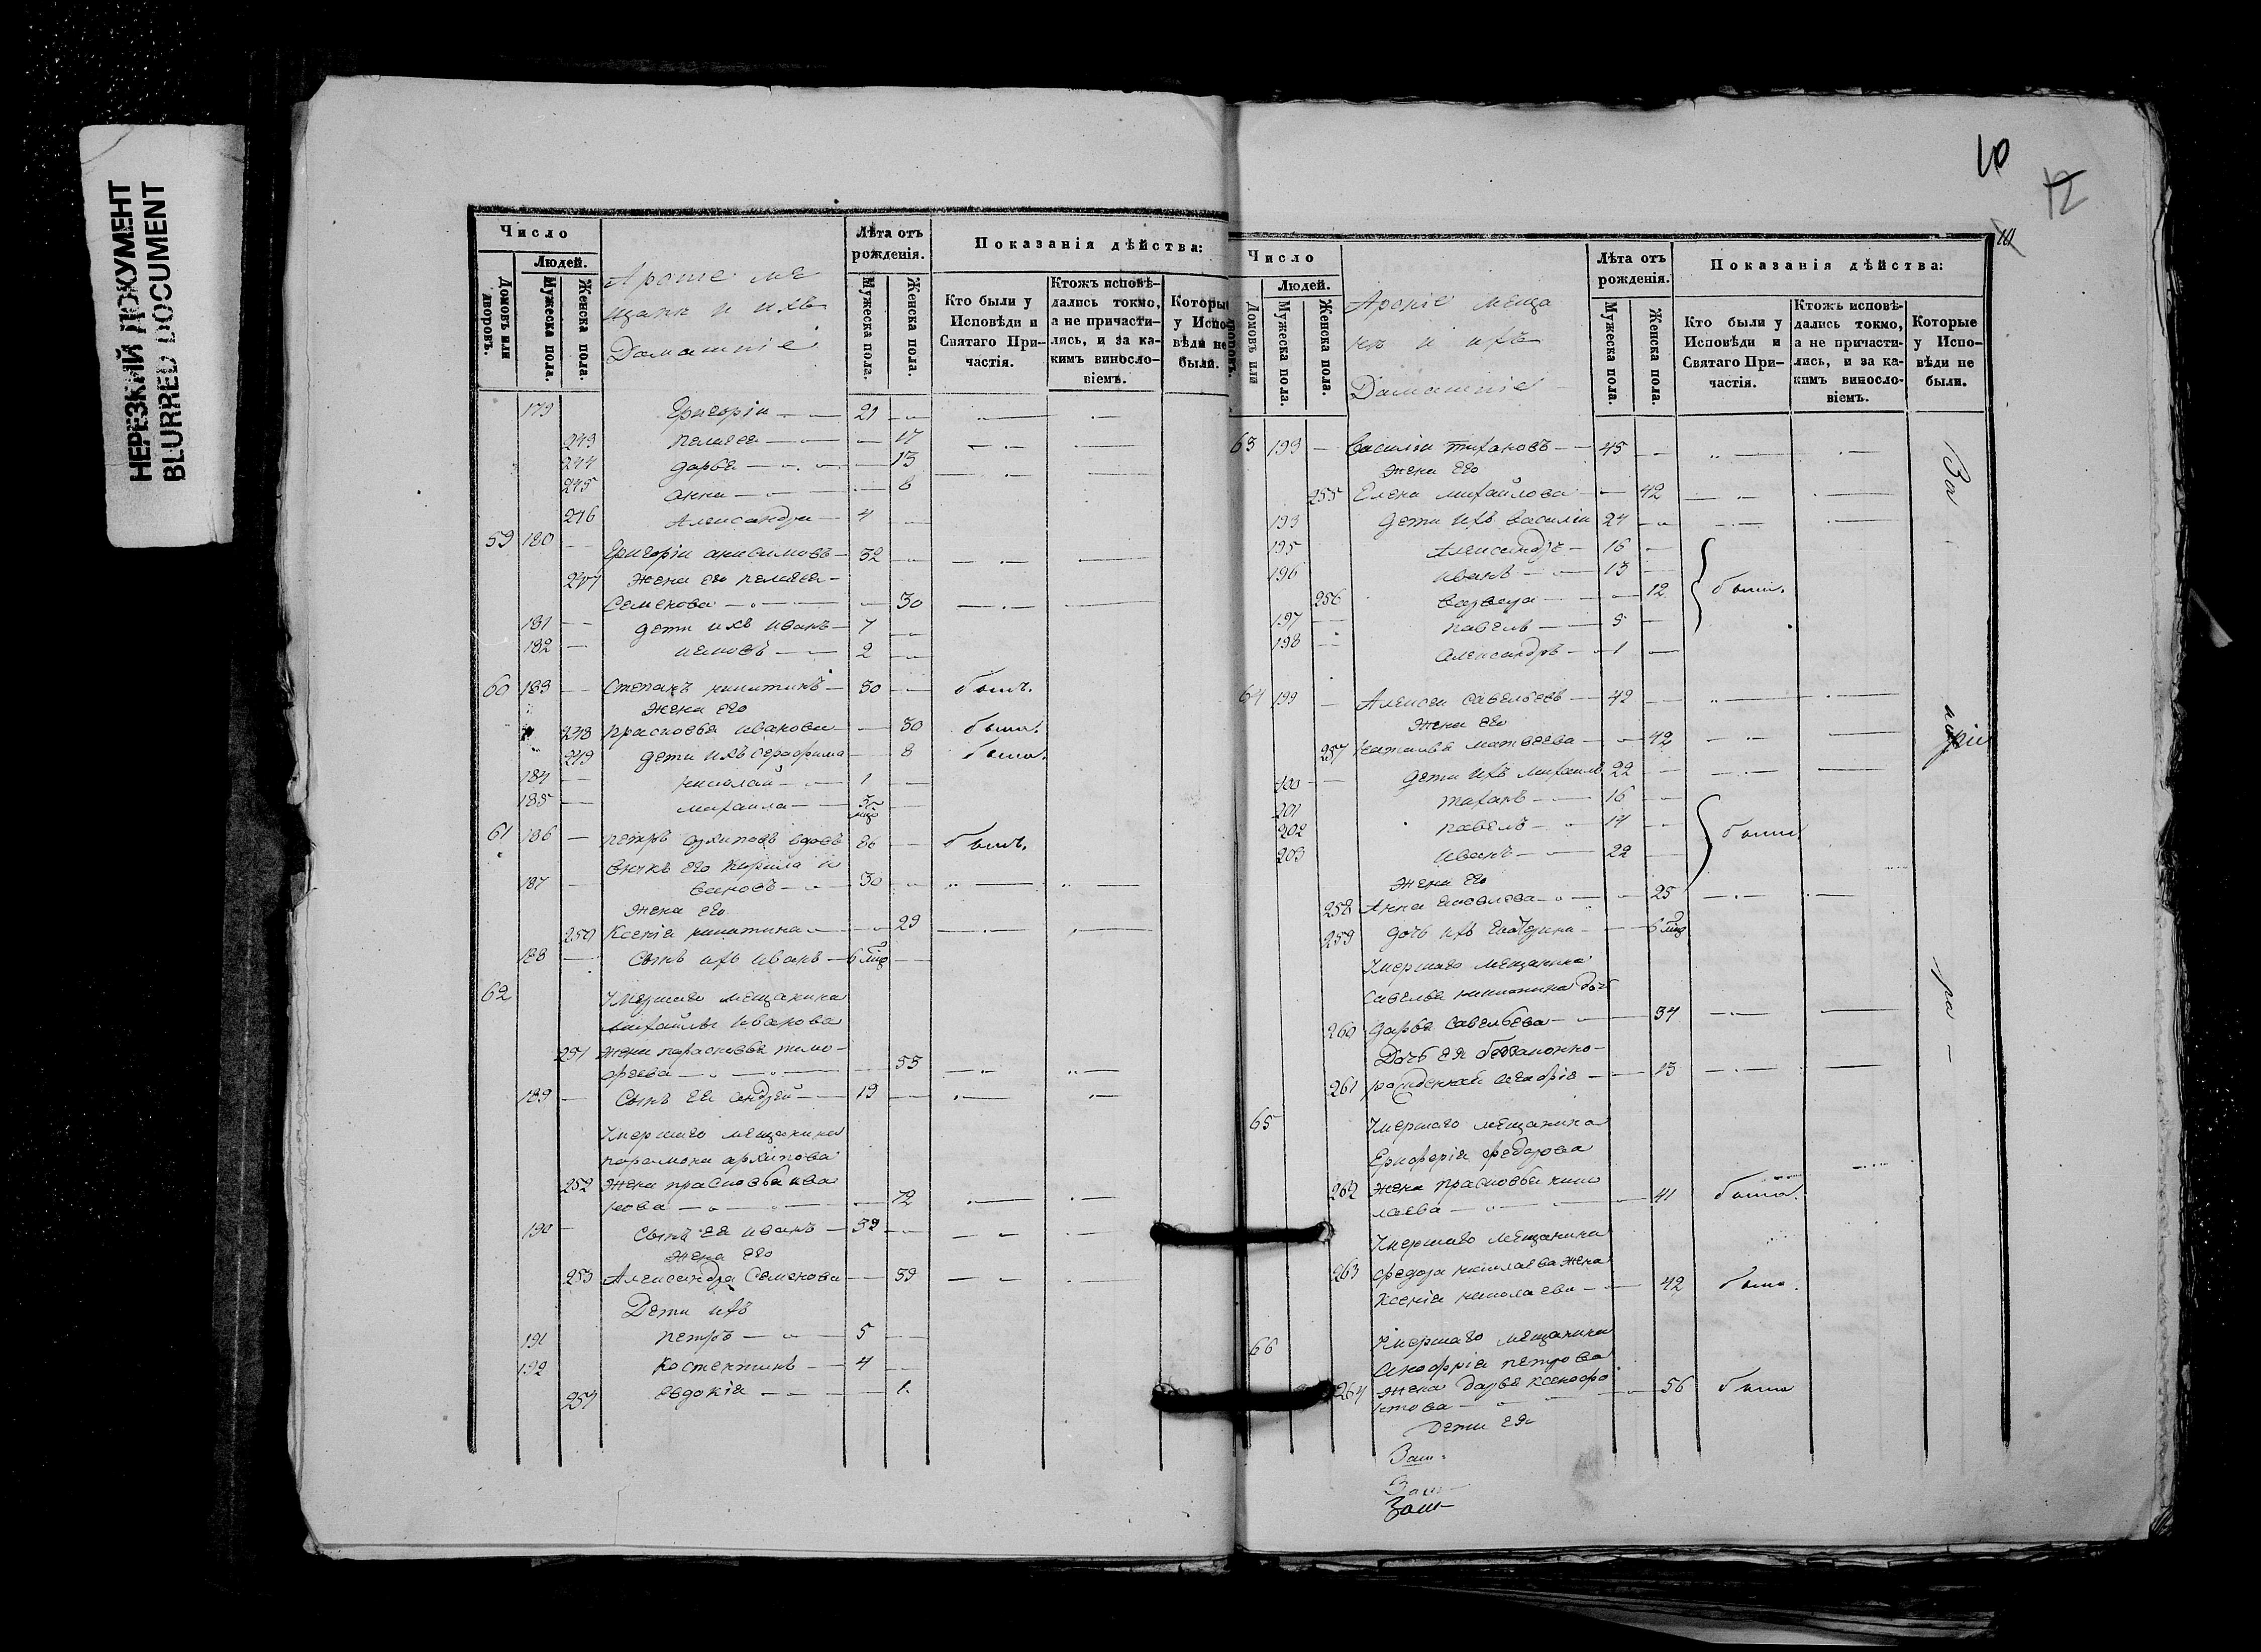 НЕРЕЗКИЙ ДОКУМЕНТ
BLURRED DOCUMENT
Число
Людей.
Домовъ или дворовъ.
Мужеска пола.
Женска пола.
Лѣта отъ рожденія.
Мужеска пола.
Женска пола.
Показанія дѣйства:
Кто были у Исповѣди и Святаго При-
частія.
Ктожъ исповѣ-
дались токмо,
а не причасти-
лись, и за ка-
кимъ виносло-
віемъ.
Которые
у Испо-
вѣди не
были.
щане и ихъ
Домашніе
179 Григорій 21
243 Пелагея 17
244 Дарья 13
245 Анна 8
246 Александра 4
59 180 Григорій Анисимовъ 32
247 Жена его Пелагея
Семенова 30
181 Дети ихъ Иванъ 7
182 2
60 183 Степанъ Никитинъ 30 былъ.
Жена его
248 Прасковья Иванова 30 была.
249 Дети ихъ Серафима 8 была.
184 Николай 1
185 Михаила
61 186 Петръ Архиповъ вдовъ 86 былъ.
внукъ его Кирила И
187 вановъ 30
Жена его
250 Ксенія Никитина 29
188 Сынъ ихъ Иванъ 6 мцо
62 Умершаго мещанина
Михайлы Иванова
251 Жена Парасковья Тимо-
феева 55
189 Сынъ ея Андрей 19
Умершаго мещанина
Парамона Архипова
252 Жена Прасковья Ива
нова 72
190 Сынъ ея Иванъ 39
Жена его
253 Александра Семенова 39
Дети ихъ
191 Петръ 5
192 Костентинъ 4
254 Евдокія 1
10
12
Число
Людей.
Домовъ или дворовъ.
Мужеска пола.
Женска пола.
меща
не и ихъ
Домашніе
Лѣта отъ
рожденія.
Мужеска пола.
Женска пола.
Показанія дѣйства:
Кто были у
Исповѣди и
Святаго При-
частія.
Ктожъ исповѣ-
дались токмо,
а не причасти-
лись, и за ка-
кимъ виносло-
віемъ.
Которые
у Испо-
вѣди не
были.
63 193 Василій Тихановъ 45
Жена его
255 Елена Михайлова 42
193 Дети ихъ Василій 24
195 Александръ 16
196 Иванъ 13
256 Варвара 12 были.
197 Павелъ 5
198 Александръ 1
64 199 Алексей Савельевъ 42
Жена его
257 Наталья Матвеева 42
200 Дети ихъ Михаилъ 22
201 Тиханъ 16
202 Павелъ 14 были
203 Иванъ 22
Жена его
258 Анна Яковлева 25
259 Дочь ихъ Екатерина 6 мцо
Умершаго мещанина
Савелья Никитина дочь
260 Дарья Савельева 34
Дочь ея беззаконно-
261 рожденная 13
65 Умершаго мещанина
Федорова
262 Жена Прасковья Нико
лаева 41 была.
Умершаго мещанина
263 Федора Николаева жена
Ксенія Николаева 42 была.
66 Умершаго мещанина
Онофрія Петрова
264 Жена Дарья Ксенофо
нтова 56 была
Дети ея